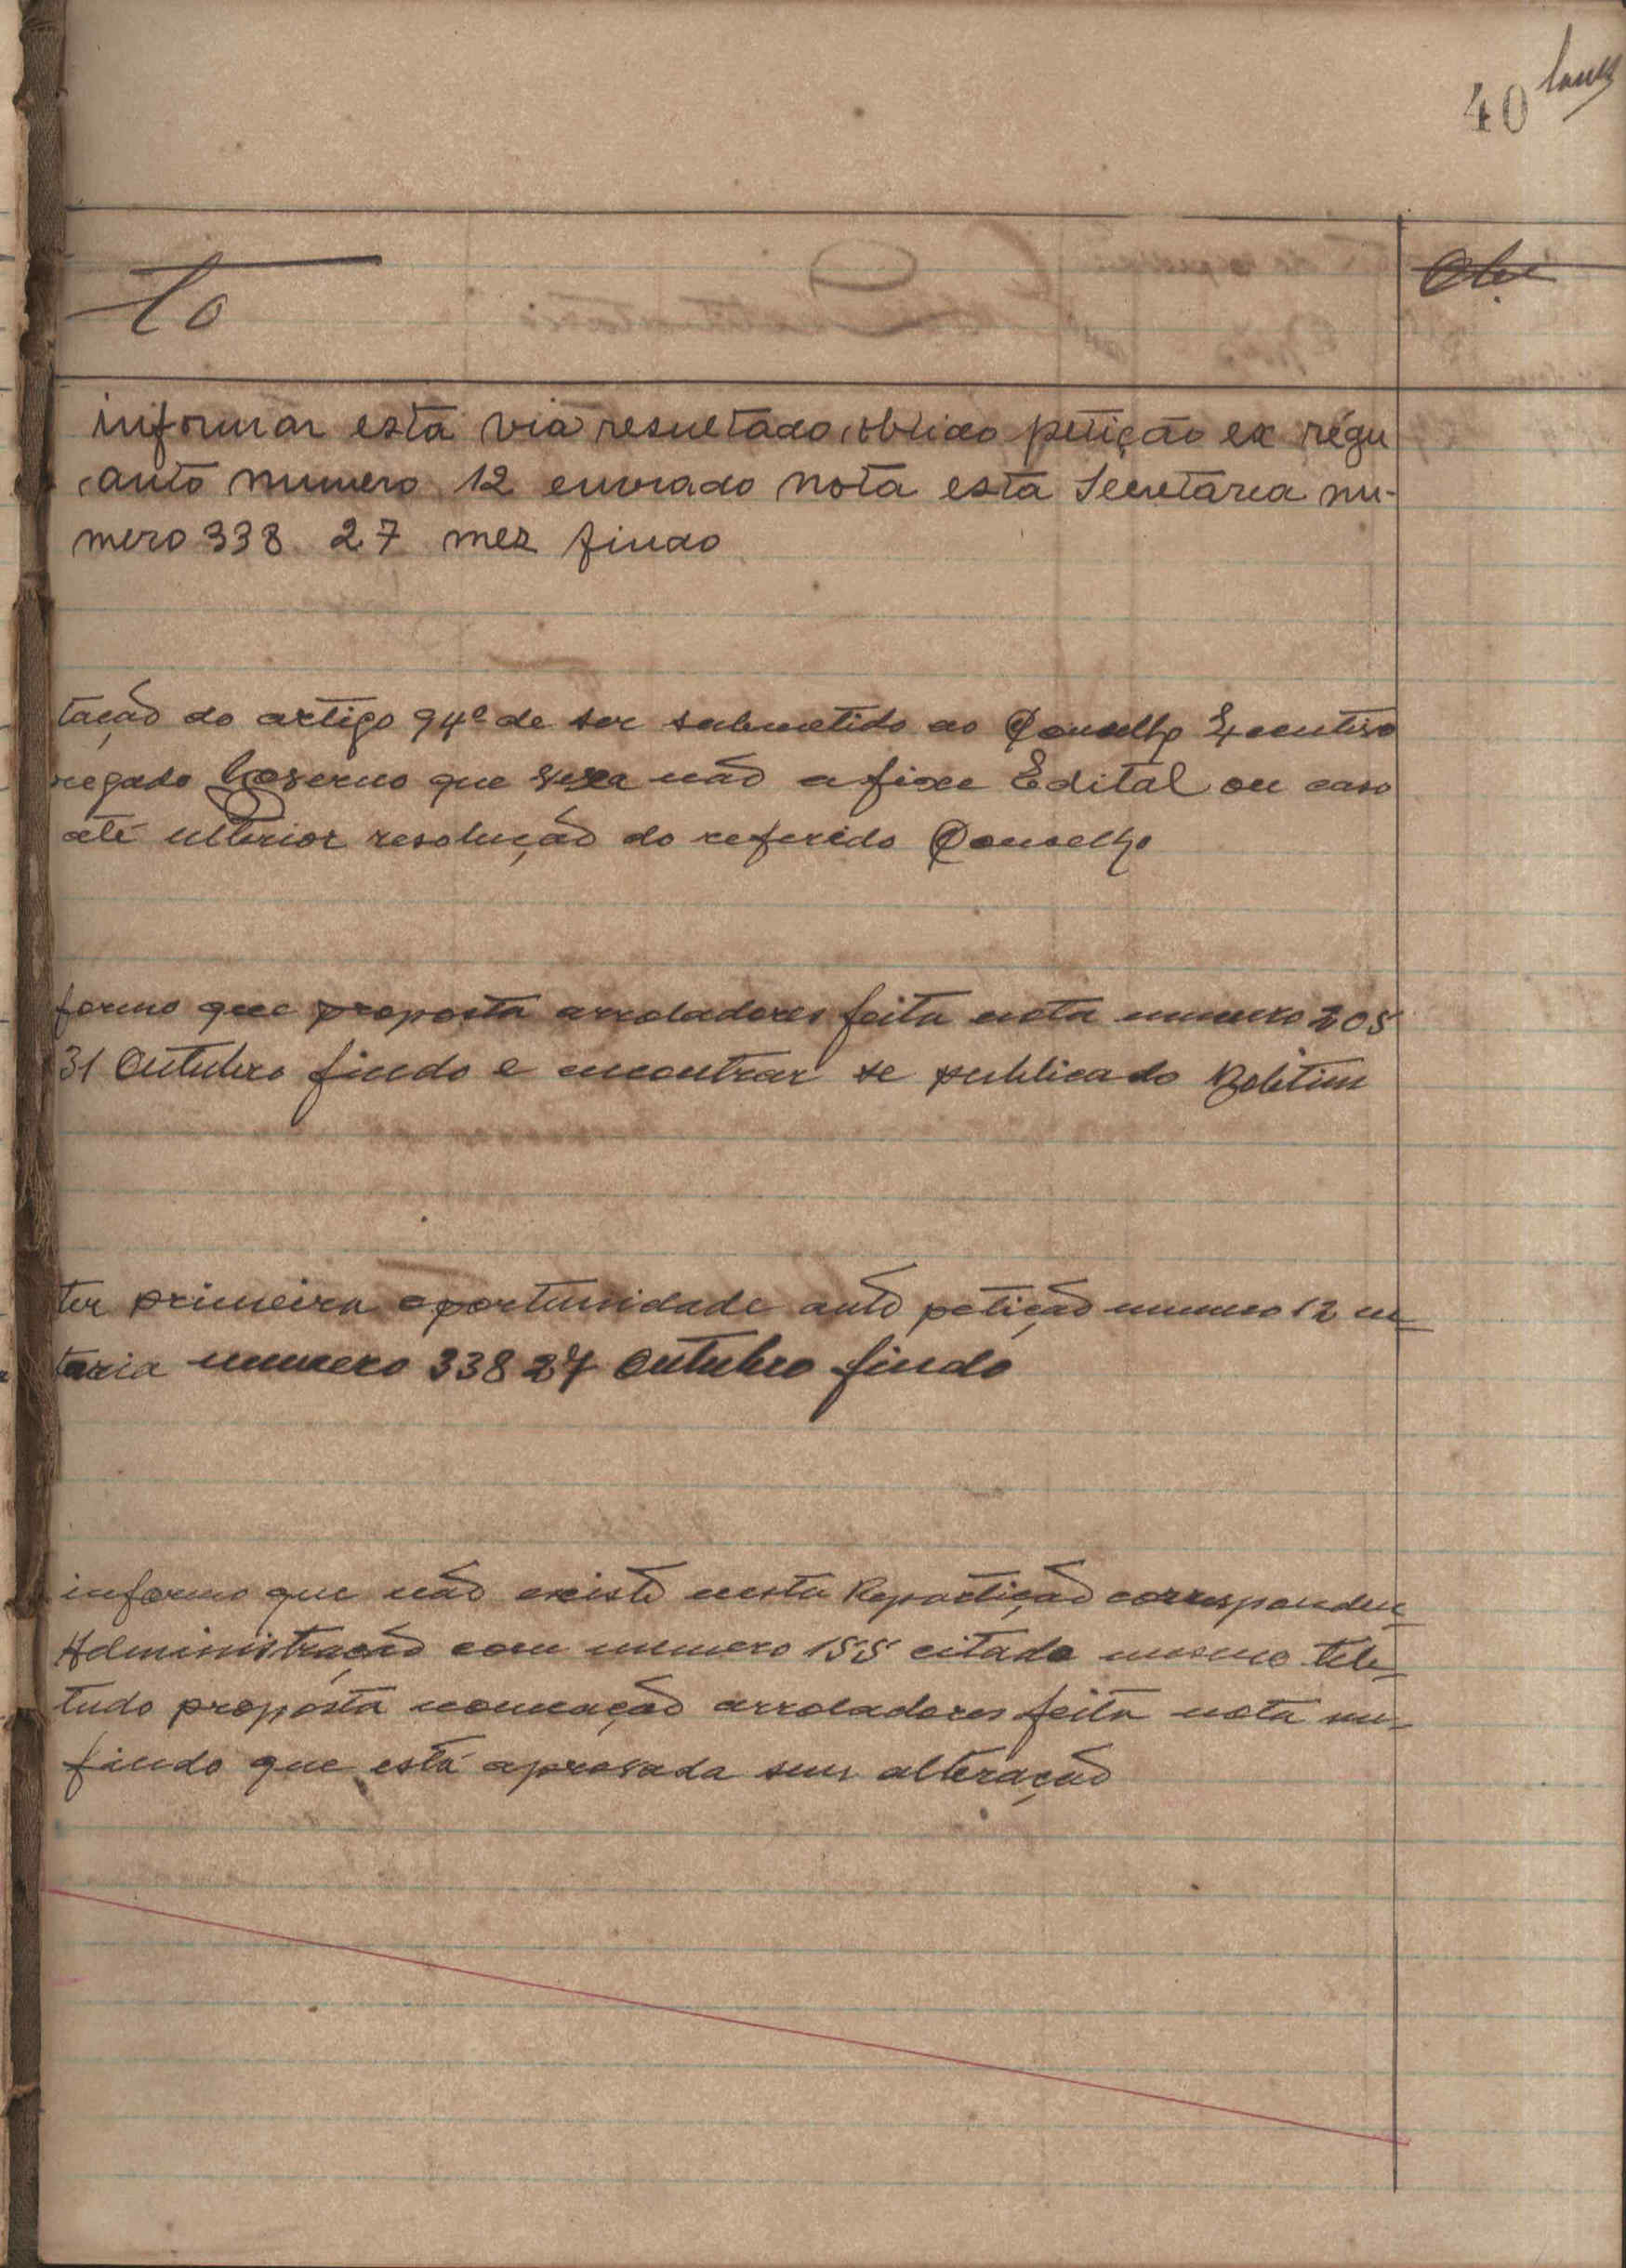 40
to
Obs.
informar esta via resultado obtido petição ex régu
auto numero 12 enviado nota esta Secretaria nu-
mero 338 27 mez findo
tação do artigo 94º de ser submetido ao Conselho Executivo
regado Governo que não afixe Edital ou caso
até ulterior resolução do referido Conselho
formo que proposta arroladores feita nota numero 205
31 Outubro findo e encontrar se publicado Boletim
ter primeira oportunidade auto petição numero 12 en
taria numero 338 27 Outubro findo
informo que não existe nesta Repartição corresponden
Administração com numero 155 citado mesmo tele
tudo proposta nomeação arroladores feita nota nu-
findo que está aprovada sem alteração